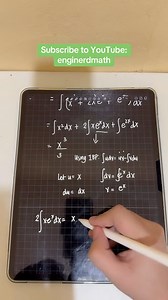 Subscribe to YouTube:
enginerdmath
= ∫x²dx + 2∫xeˣdx + ∫e²ˣdx
= x³
3
Using IBP: ∫udv = uv - ∫vdu
Let u = x ∫dv = ∫eˣdx
du = dx v = eˣ
2∫xeˣdx = x